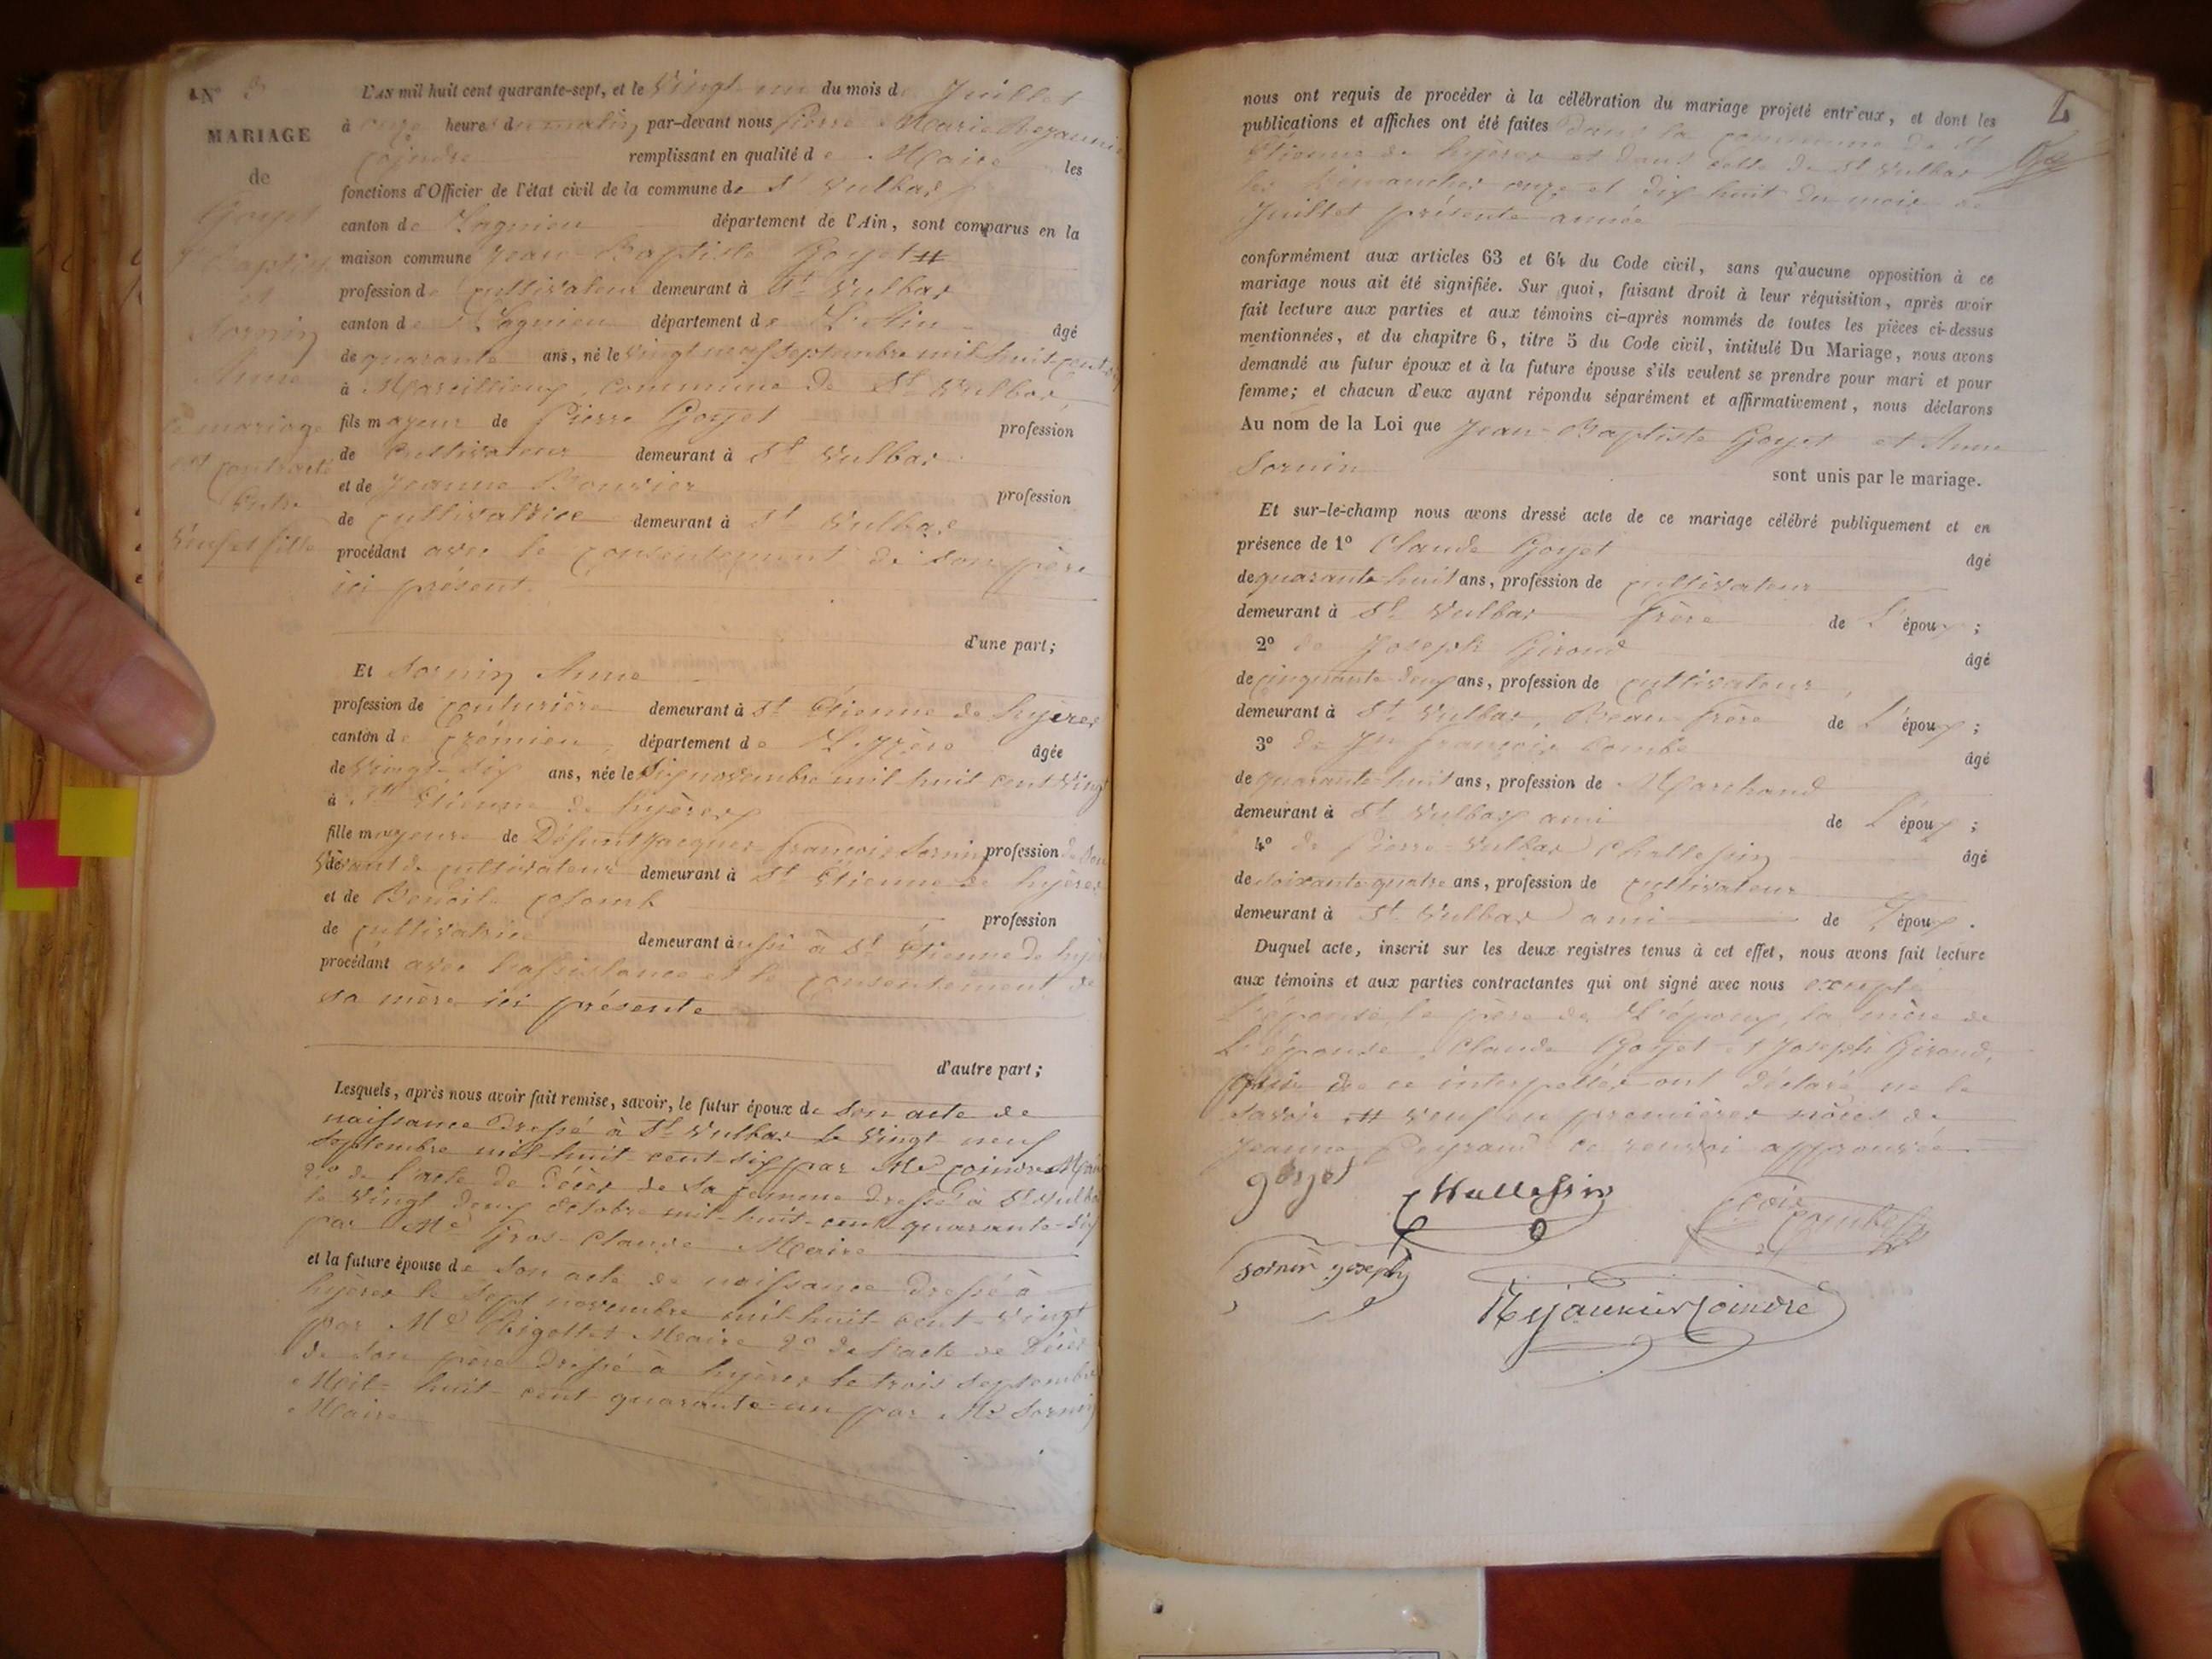 N°
MARIAGE
de
Goyet
J Baptiste
et
Sornin
Anne
le mariage
est contracté
Entre
Veuf et fille
L'AN mil huit cent quarante-sept, et le Vingt un du mois de Juillet
à onze heures du matin par-devant nous Pierre Marie Rejaunier
Coindre remplissant en qualité de Maire les
fonctions d'Officier de l'état civil de la commune de St Vulbas
canton de Lagnieu département de l'Ain, sont comparus en la
maison commune Jean-Baptiste Goyet #
profession de cultivateur demeurant à St Vulbas
canton de Lagnieu département de L'Ain âgé
de quarante ans, né le vingt neuf septembre mil huit cent
à Marcillieux, commune de St Vulbas
fils majeur de Pierre Goyet profession
de Cultivateur demeurant à St Vulbas
et de Jeanne Bouvier profession
de cultivatrice demeurant à St Vulbas
procédant avec le consentement de son père
ici présent
d'une part;
Et Sornin Anne
profession de couturière demeurant à St Étienne de hyères
canton de Crémieu, département de L'Izère âgée
de Vingt-six ans, née le Six novembre mil huit cent vingt
à St Étienne de hyères
fille majeure de Défunt Jacques françois Sornin profession de Son
Vivant de cultivateur demeurant à St Étienne de hyères
et de Benoite Colomb profession
de cultivatrice demeurant aussi à St Étienne de hyères
procédant avec l'assistance et le consentement de
sa mère ici présente
d'autre part;
Lesquels, après nous avoir fait remise, savoir, le futur époux de Son acte de
naissance Dressé à St Vulbas le Vingt neuf
Septembre mil-huit-cent-six par Me Coindre Maire
2° de l'acte de Décès de sa femme dressé à St Vulbas
le Vingt deux octobre mil-huit-cent quarante-six
par Me Gros-Claude Maire
et la future épouse de Son acte de naissance Dressé à
hyères le Sept novembre mil-huit-cent-Vingt
par Me Rigollet Maire 2° de l'acte de Décès
de Son père Dressé à hyères le trois Septembre
Mil-huit-cent-quarante-un par Me Sornin
Maire
4
nous ont requis de procéder à la célébration du mariage projeté entr'eux, et dont les
publications et affiches ont été faites dans la commune de St
Étienne de hyères et dans celle de St Vulbas
les Dimanches onze et dix huit du mois de
Juillet présente année
conformément aux articles 63 et 64 du Code civil, sans qu'aucune opposition à ce
mariage nous ait été signifiée. Sur quoi, faisant droit à leur réquisition, après avoir
fait lecture aux parties et aux témoins ci-après nommés de toutes les pièces ci-dessus
mentionnées, et du chapitre 6, titre 5 du Code civil, intitulé Du Mariage, nous avons
demandé au futur époux et à la future épouse s'ils veulent se prendre pour mari et pour
femme; et chacun d'eux ayant répondu séparément et affirmativement, nous déclarons
Au nom de la Loi que Jean-Baptiste Goyet et Anne
Sornin sont unis par le mariage.
Et sur-le-champ nous avons dressé acte de ce mariage célébré publiquement et en
présence de 1° Claude Goyet âgé
de quarante-huit ans, profession de cultivateur
demeurant à St Vulbas frère de L'époux;
2° de Joseph Giroud âgé
de cinquante deux ans, profession de cultivateur,
demeurant à St Vulbas, Beau-frère de L'époux;
3° de Jn françois Combe âgé
de quarante-huit ans, profession de Marchand
demeurant à St Vulbas ami de L'époux;
4° de Pierre-Vulbas Challessin âgé
de soixante quatre ans, profession de cultivateur
demeurant à St Vulbas ami de L'époux.
Duquel acte, inscrit sur les deux registres tenus à cet effet, nous avons fait lecture
aux témoins et aux parties contractantes qui ont signé avec nous excepté
L'épouse, le père de L'époux, la mère de
L'épouse, Claude Goyet et Joseph Giroud,
qui de ce interpellés ont déclaré ne le
savoir # veuf en premières nôces de
Jeanne Peyraud ce renvoi approuvé
goyet
Challessin
Combe
sornin joseph
Rejaunier Coindre